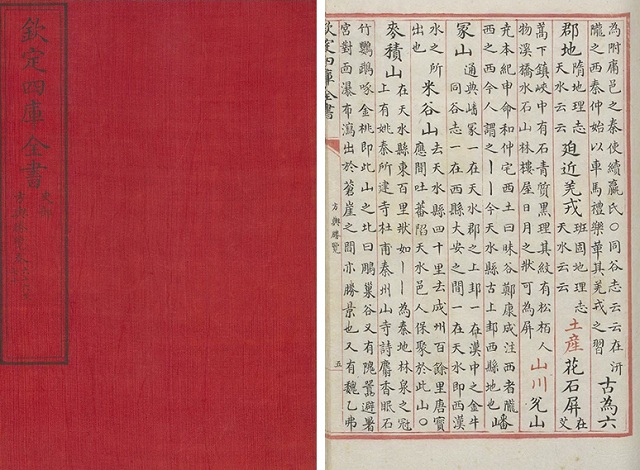 欽定四庫全書
史部
為附庸邑之秦使續嬴氏○同谷志云云在汧
隴之西秦仲始以車馬禮樂華其羌戎之習
古為六
郡地
隋地理志
天水云云
迫近羌戎
班固地理志
天水云云
土產
花石屏
在
艾
蒿下鎮峽中有石青質黑理其紋有松柏人
物溪橋水石山林樓屋日月之狀可為屏
山川
兊山
尭本紀申命和仲宅西土曰昧谷鄭康成注西者隴
西之西今人謂之丨丨今天水縣古上邽西縣地也
嶓
冡山
通典嶓冡一在天水郡之上邽一在漢中之金牛
同谷志一在西縣大安之間一在天水即西漢
水之所
出也
米谷山
去天水縣四十里去成州百餘里唐寳
應間吐蕃陷天水邑人保聚於此山○
麥積山
在天水縣東百里狀如丨丨為秦地林泉之冠
上有姚秦所建寺杜甫秦州山寺詩麝香眠石
竹鸚鵡啄金桃即此山之北曰鵰巢谷又有隗囂避暑
宫對面瀑布瀉出於蒼崖之間亦勝景也又有魏乙弗
欽定四庫全書
方輿勝覽
五